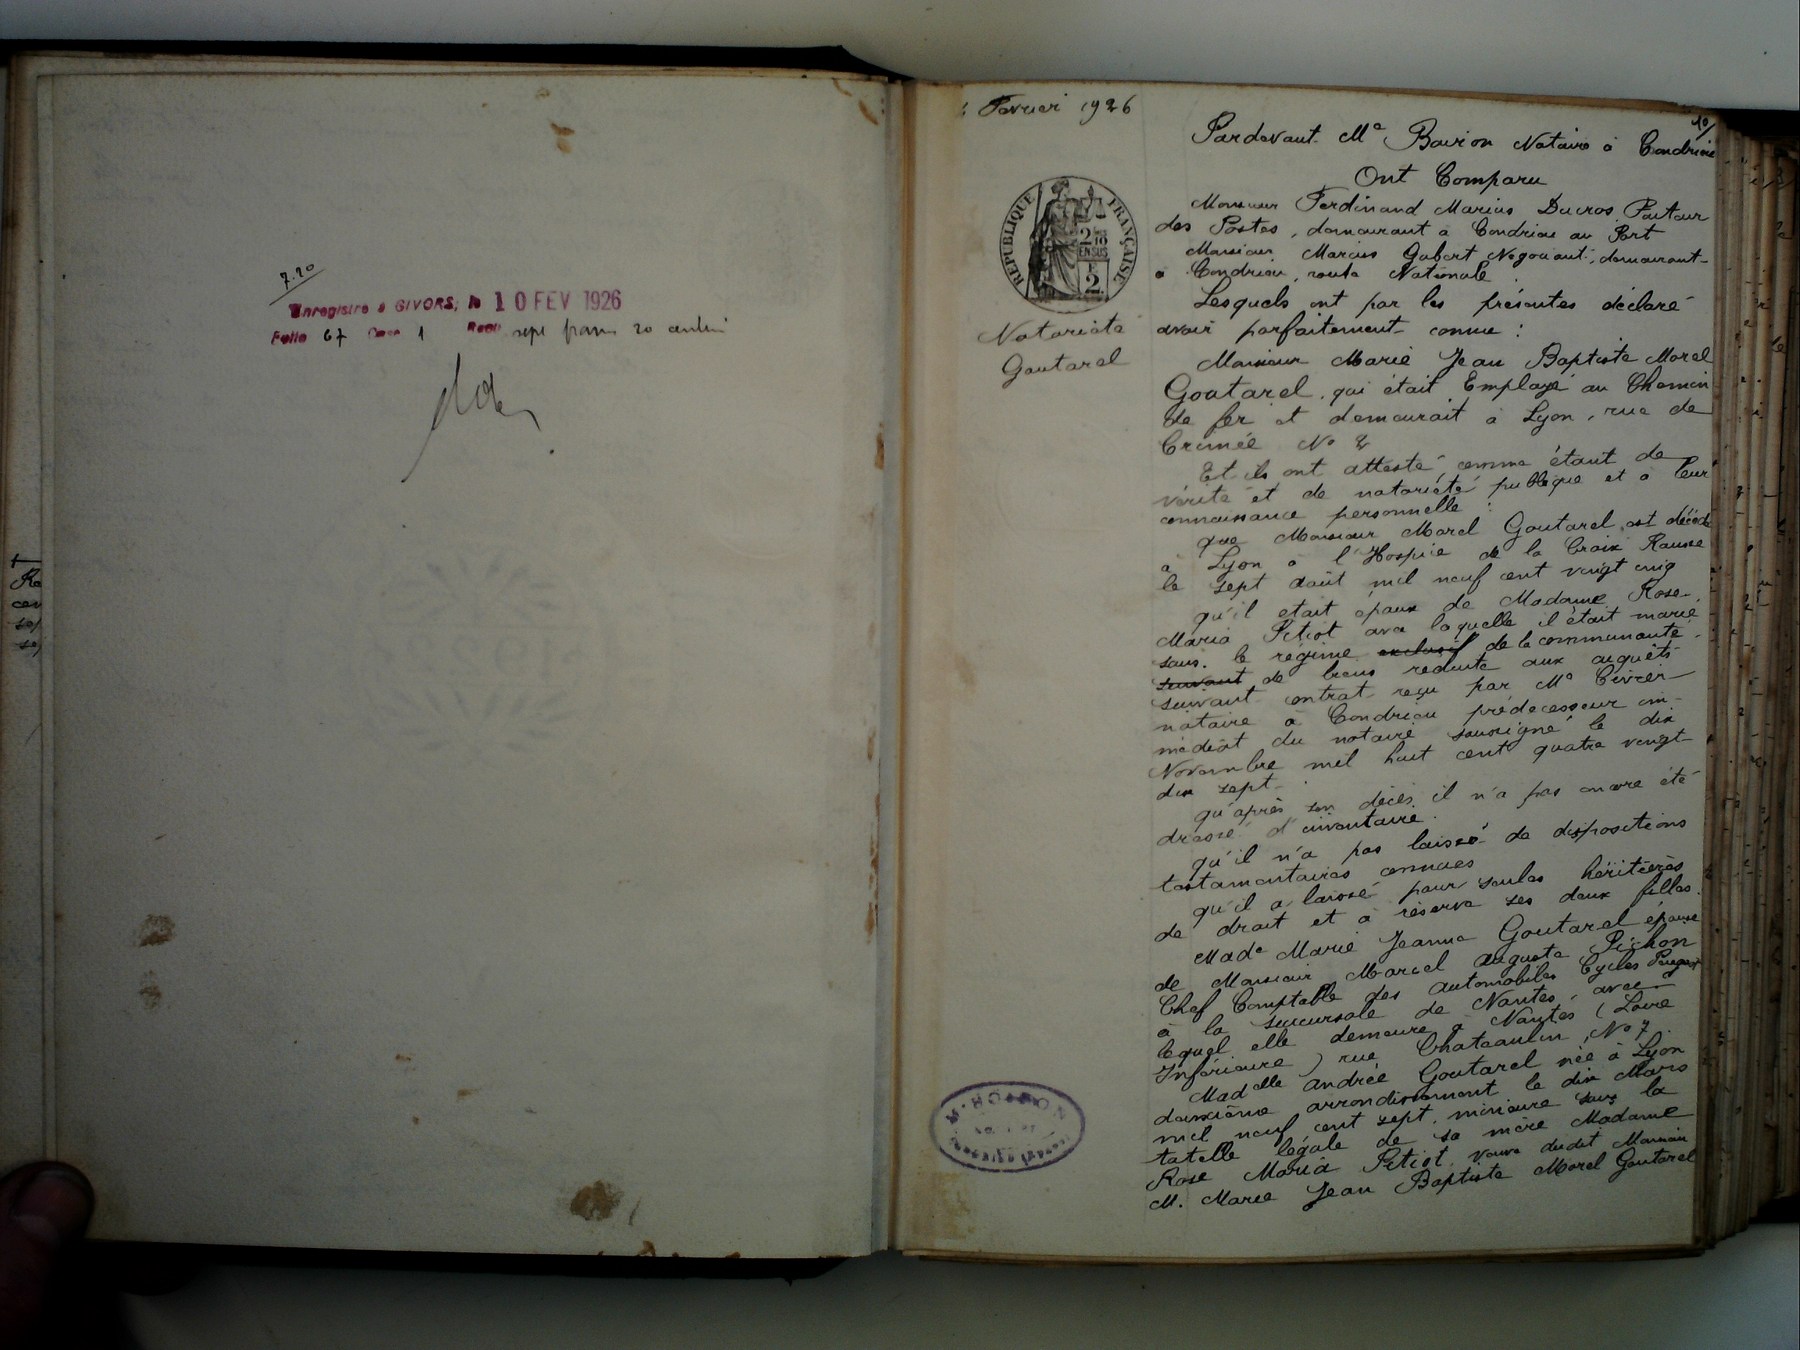 7.20
Enregistré à GIVORS, le 10 FEV 1926
Folio 67 Case 1 Reçu sept francs 20 centimes
Février 1926
10/
Pardevant Me Boiron Notaire à Condrieu
Ont Comparu
RÉPUBLIQUE FRANÇAISE
2/10 EN SUS
2
Notoriété
Goutarel
Monsieur Ferdinand Marius Ducros, Facteur
des Postes, demeurant à Condrieu au Port
Monsieur Marius Gabert Négociant, demeurant
à Condrieu, route Nationale
Lesquels ont par les présentes déclaré
avoir parfaitement connu :
Monsieur Marie Jean Baptiste Morel
Goutarel, qui était Employé au Chemin
de fer et demeurait à Lyon, rue de
Crimée No 2
Et ils ont attesté, comme étant de
vérité et de notoriété publique et à leur
connaissance personnelle :
que Monsieur Morel Goutarel, est décédé
à Lyon à l'Hospice de la Croix Rousse
le sept août mil neuf cent vingt cinq
qu'il était époux de Madame Rose
Maria Petiot avec laquelle il était marié
sous le régime exclusif de la communauté
suivant de biens réduite aux acquêts
suivant contrat reçu par Me Cévrier
notaire à Condrieu prédécesseur im-
médiat du notaire soussigné le dix
Novembre mil huit cent quatre vingt
dix sept
qu'après son décès il n'a pas encore été
dressé d'inventaire.
qu'il n'a pas laissé de dispositions
testamentaires connues
qu'il a laissé pour seules héritières
de droit et à réserve ses deux filles.
Made Marie Jeanne Goutarel épouse
de Monsieur Marcel Auguste Pichon
Chef Comptable des automobiles Cycles Peugeot
à la succursale de Nantes, avec
lequel elle demeure à Nantes (Loire
Inférieure) rue Chateaulin, No 7.
Madelle Andrée Goutarel née à Lyon
deuxième arrondissement le dix Mars
mil neuf cent sept, mineure sous la
tutelle légale de sa mère Madame
Rose Maria Petiot veuve dudit Monsieur
M. Marie Jean Baptiste Morel Goutarel